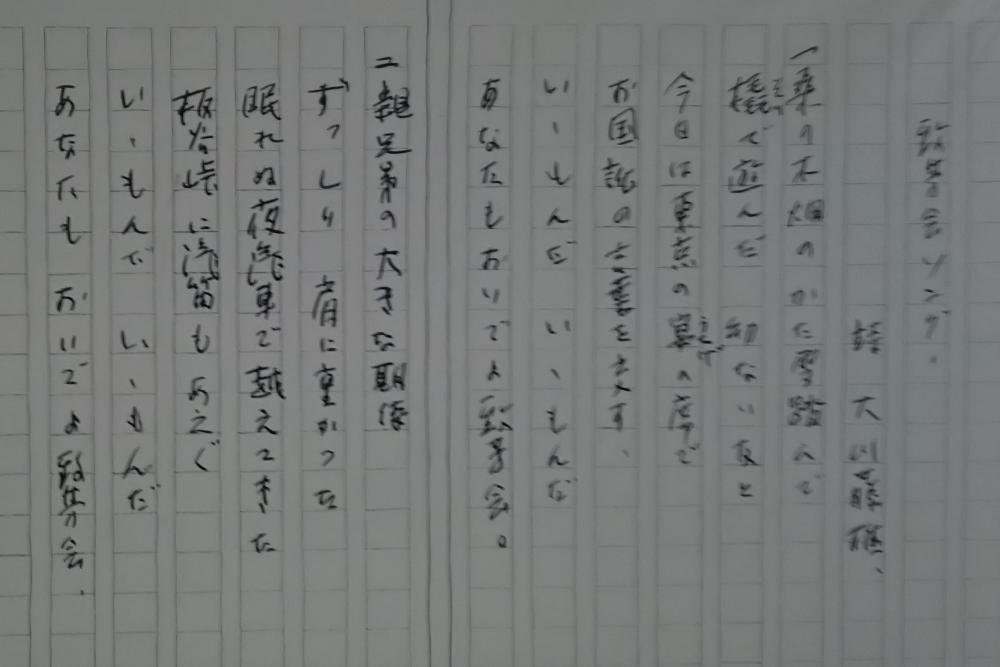 致芳会ソング。
詩 大川藤
一桑の木畑のかた雪踏んで
橇で遊んだ 幼ない友と
今日は東京の宴の席で
お国訛の言葉を交す、
いゝもんだ いゝもんだ
あなたもおいでよ致芳会。
二親兄弟の大きな期待
ずっしり 肩に重かった
眠れぬ夜汽車で越えてきた
板谷峠に汽笛も あえぐ
いゝもんだ いゝもんだ
あなたも おいでよ致芳会.